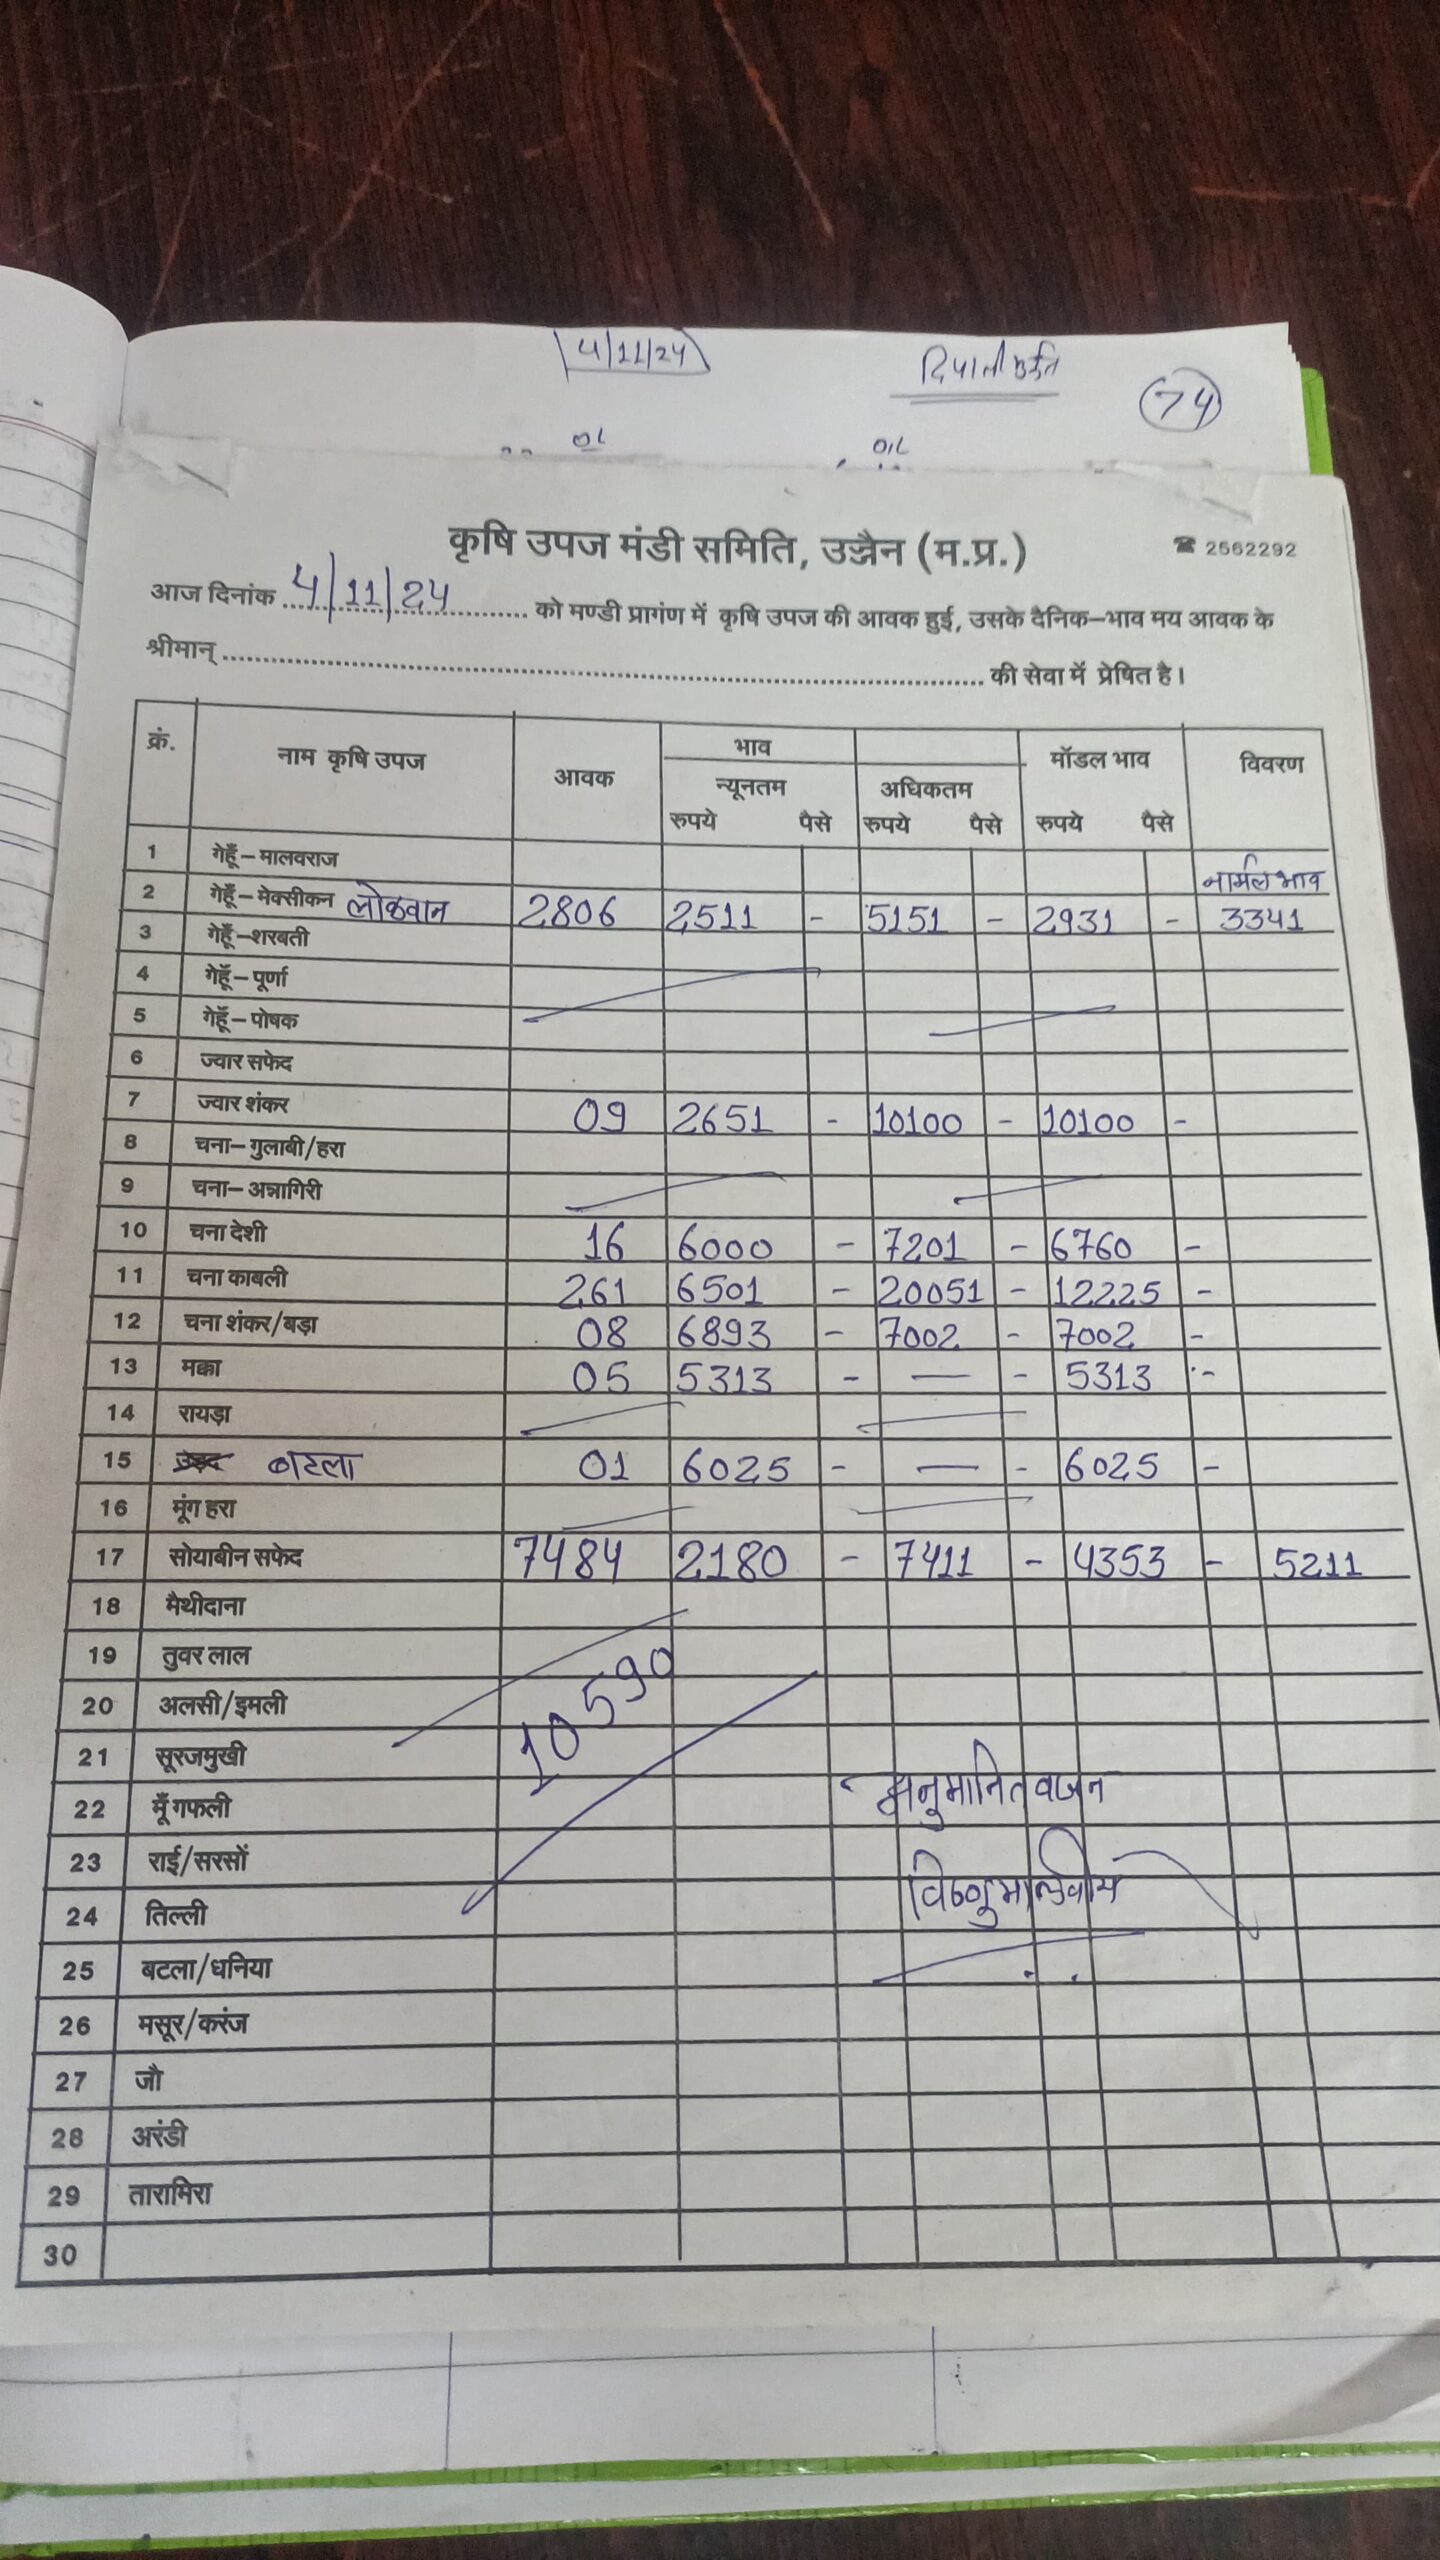 4/11/24
74
कृषि उपज मंडी समिति, उज्जैन (म.प्र.) ☎ 2562292
आज दिनांक 4/11/24 को मण्डी प्रागंण में कृषि उपज की आवक हुई, उसके दैनिक–भाव मय आवक के
श्रीमान् ........ की सेवा में प्रेषित है।
क्रं. नाम कृषि उपज आवक भाव मॉडल भाव विवरण
न्यूनतम अधिकतम
रुपये पैसे रुपये पैसे रुपये पैसे
1 गेहूँ–मालवराज
नार्मल भाव
2 गेहूँ–मेक्सीकन लोकवान 2806 2511 - 5151 - 2931 - 3341
3 गेहूँ–शरबती
4 गेहूँ–पूर्णा
5 गेहूँ–पोषक
6 ज्वार सफेद
7 ज्वार शंकर 09 2651 - 10100 - 10100 -
8 चना–गुलाबी/हरा
9 चना–अन्नागिरी
10 चना देशी 16 6000 - 7201 - 6760 -
11 चना काबली 261 6501 - 20051 - 12225 -
12 चना शंकर/बड़ा 08 6893 - 7002 - 7002 -
13 मक्का 05 5313 - — - 5313 -
14 रायड़ा
15 उड़द बटला 01 6025 - — - 6025 -
16 मूंग हरा
17 सोयाबीन सफेद 7484 2180 - 7411 - 4353 - 5211
18 मैथीदाना
19 तुवर लाल
20 अलसी/इमली
10590
21 सूरजमुखी
22 मूँगफली अनुमानित वजन
23 राई/सरसों
24 तिल्ली विष्णु मालवीय
25 बटला/धनिया
26 मसूर/करंज
27 जौ
28 अरंडी
29 तारामिरा
30